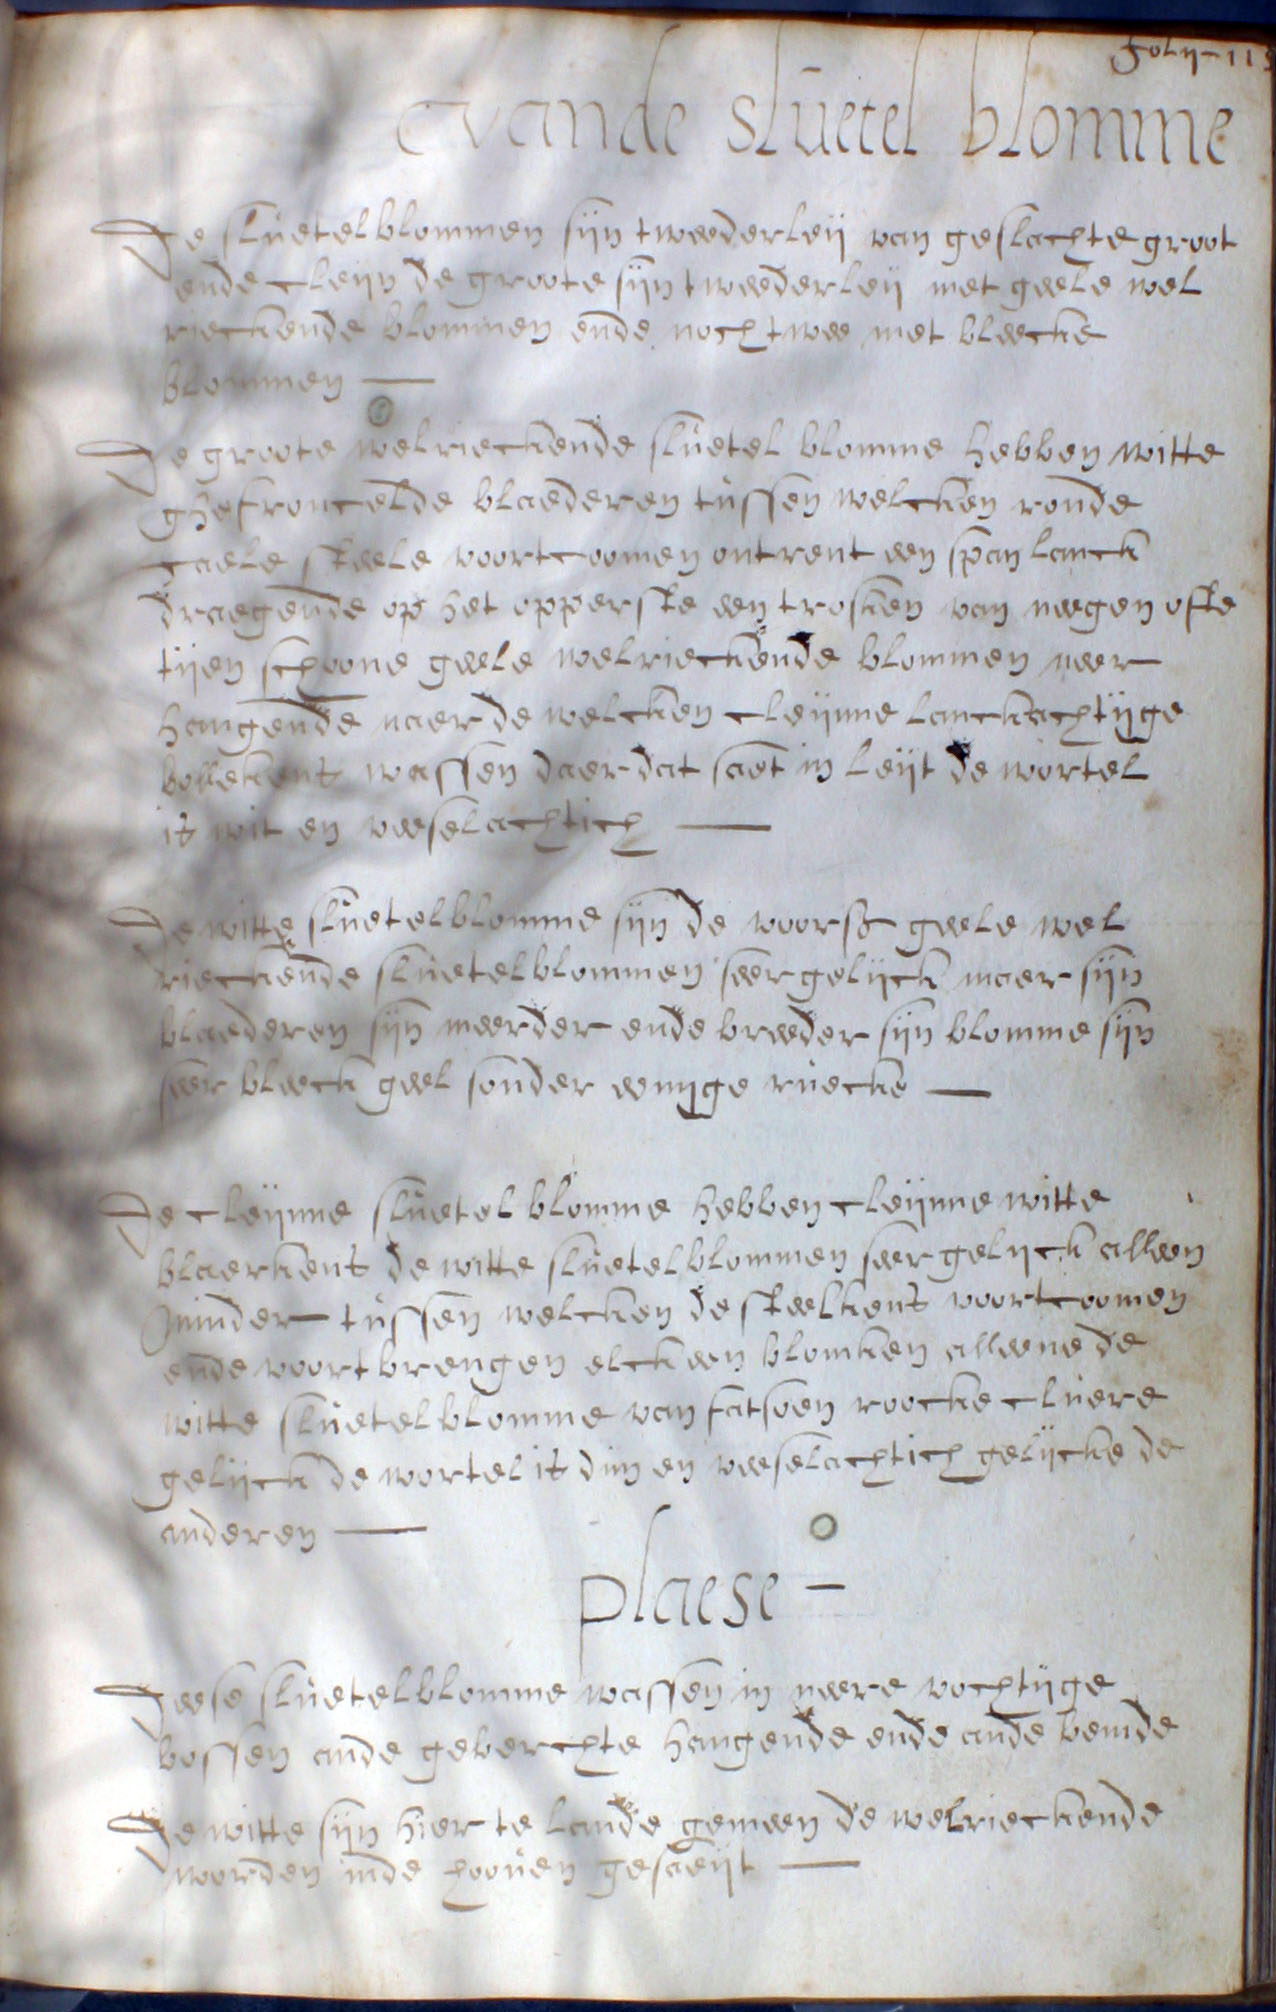 foly-115
vande sluetel blomme
De sluetelblommen sijn tweederleij van geslachte groot
ende cleijn de groote sijn tweederleij met geele wel
rieckende blommen ende noch twee met bleecke
blommen —
De groote welrieckende sluetel blomme hebben witte
ghefroncelde blaederen tussen welcken ronde
caele steele voortcoomen ontrent een span lanck
draegende op het opperste een trosken van neegen ofte
tijen schoone geele welrieckende blommen neer
hangende naer de welcken cleijnne lanckachtijge
bollekens wassen daer dat saet in leijt de wortel
is wit en veeselachtich —
De witte sluetelblomme sijn de voors geele wel
rieckende sluetelblommen seer gelijck maer sijn
blaederen sijn meerder ende breeder sijn blomme sijn
seer bleeck geel sonder eenijge ruecke —
De cleijnne sluetel blomme hebben cleijnne witte
blaerkens de witte sluetelblommen seer gelijck alleen
minder tussen welcken de steelkens voortcoomen
ende voortbrengen elck een blomken alleene de
witte sluetelblomme van fatsoen roocke cluere
gelijck de wortel is dun en veeselachtich gelijcke de
anderen —
plaese —
Deese sluetelblomme wassen in neere vochtijge
bossen ande geberchte hangende ende ande bemde
De witte sijn hier te lande gemeen de welrieckende
worden inde hooven gesaeijt —